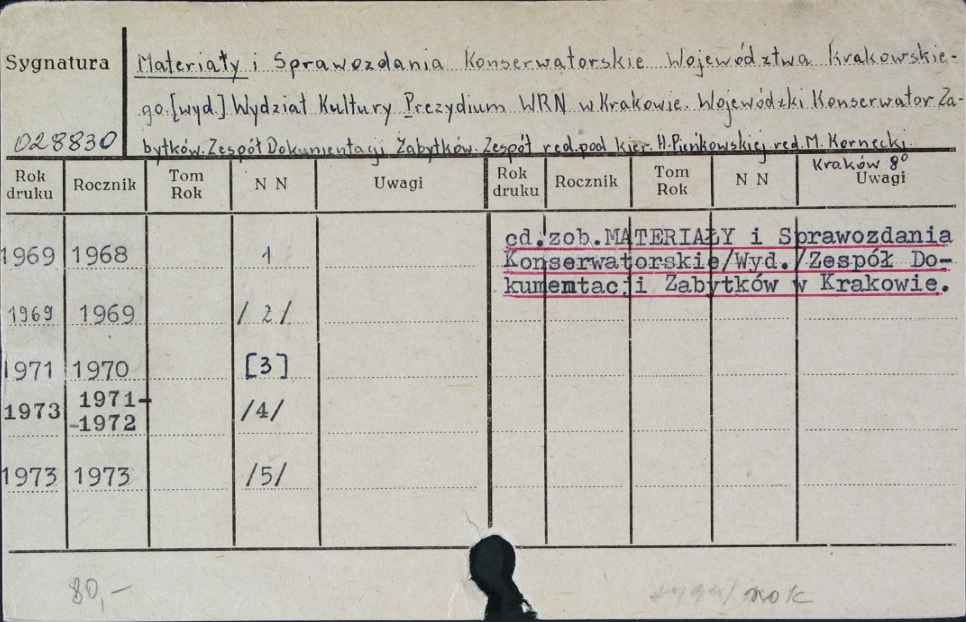 Sygnatura
028830
Materiały i Sprawozdania Konserwatorskie Województwa Krakowskie-
go. [wyd.] Wydział Kultury Prezydium WRN w Krakowie. Wojewódzki Konserwator Za-
bytków. Zespół Dokumentacji Zabytków. Zespół red. pod kier. H. Pieńkowskiej red. M. Kornecki.
Kraków 8°
Rok druku Rocznik Tom Rok N N Uwagi Rok druku Rocznik Tom Rok N N Uwagi
1969 1968 1
1969 1969 /2/
1971 1970 [3]
1973 1971-
-1972 /4/
1973 1973 /5/
cd. zob. MATERIAŁY i Sprawozdania
Konserwatorskie/Wyd./Zespół Do-
kumentacji Zabytków w Krakowie.
80,-